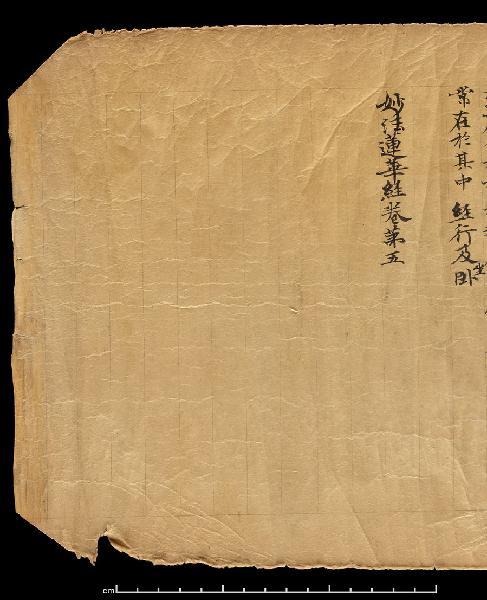 常在於其中 經行及坐卧
妙法蓮華經卷第五
cm